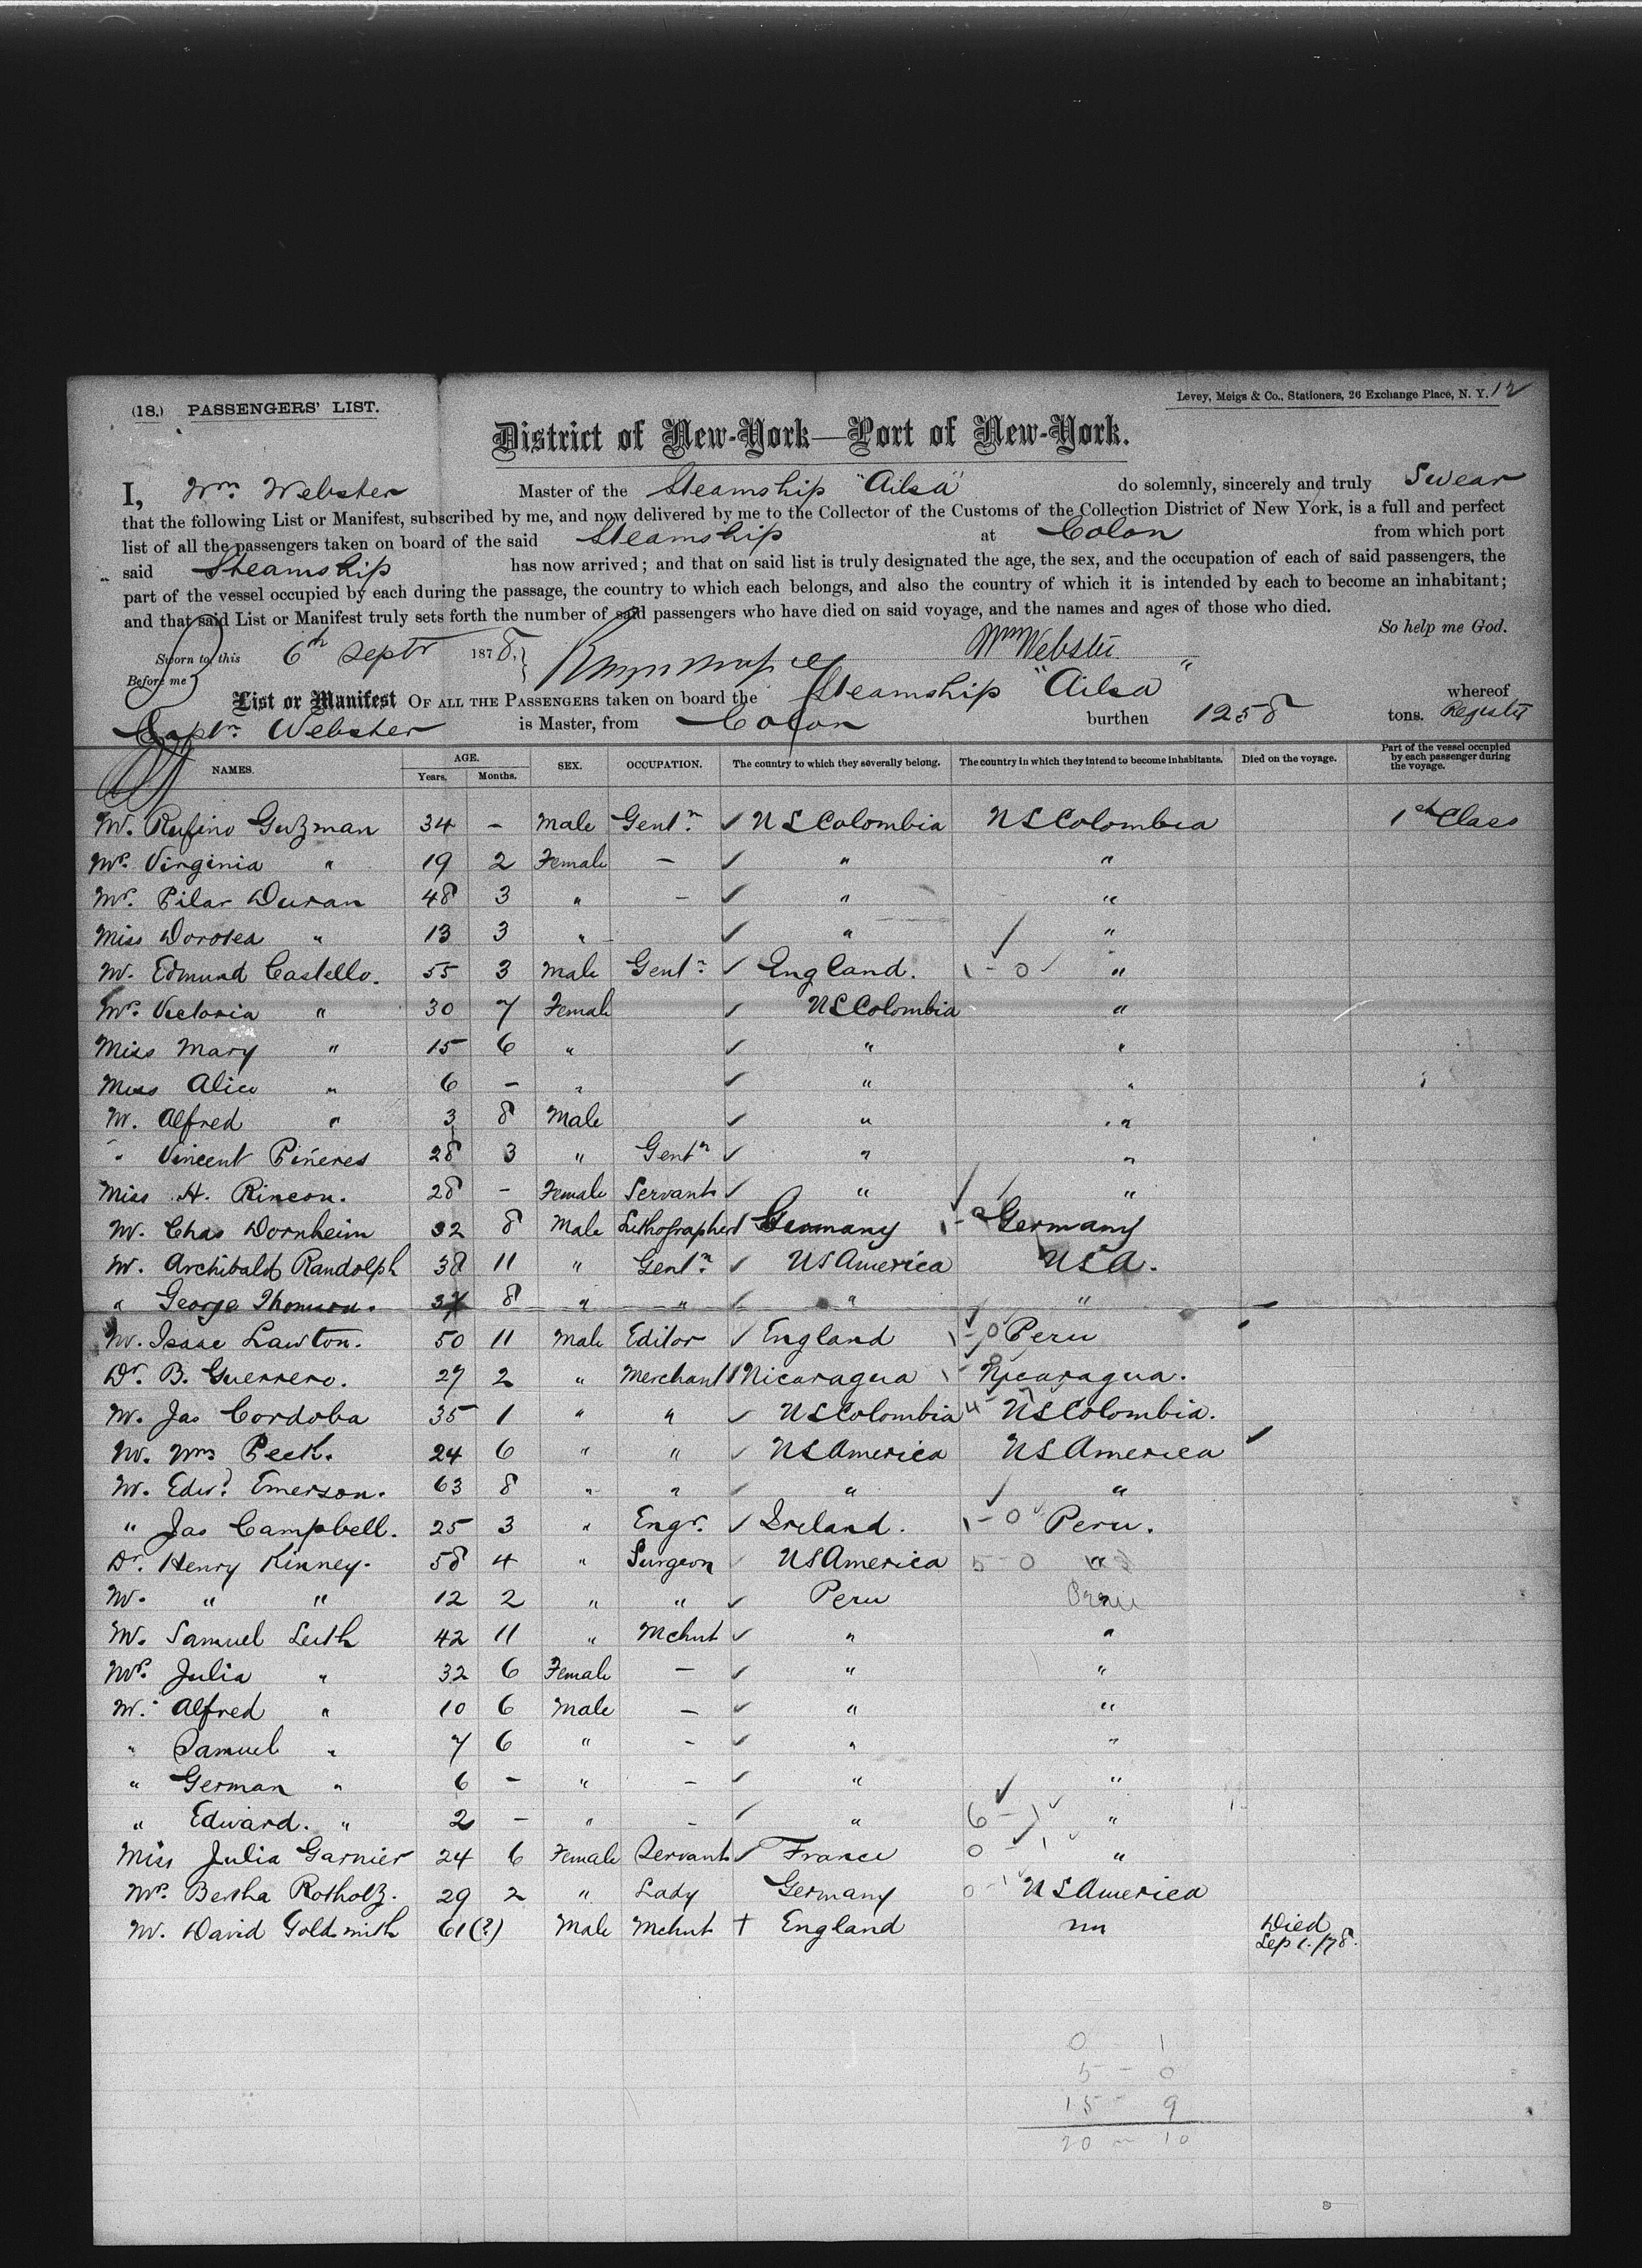 (18.) PASSENGERS' LIST.
Levey, Meigs & Co., Stationers, 26 Exchange Place, N. Y. 12
District of New-York—Port of New-York.
I, Wm. Webster Master of the Steamship "Ailsa" do solemnly, sincerely and truly Swear
that the following List or Manifest, subscribed by me, and now delivered by me to the Collector of the Customs of the Collection District of New York, is a full and perfect
list of all the passengers taken on board of the said Steamship at Colon from which port
said Steamship has now arrived; and that on said list is truly designated the age, the sex, and the occupation of each of said passengers, the
part of the vessel occupied by each during the passage, the country to which each belongs, and also the country of which it is intended by each to become an inhabitant;
and that said List or Manifest truly sets forth the number of said passengers who have died on said voyage, and the names and ages of those who died.
So help me God.
Sworn to this 6th Septr 1878, Wm Webster
Before me
List or Manifest OF ALL THE PASSENGERS taken on board the Steamship "Ailsa" whereof
Captn. Webster is Master, from Colon burthen 1258 tons. Register
NAMES. AGE. Years. Months. SEX. OCCUPATION. The country to which they severally belong. The country in which they intend to become inhabitants. Died on the voyage. Part of the vessel occupied by each passenger during the voyage.
Mr. Rufino Guzman 34 - Male Gentn. ✓ US Colombia US Colombia 1st Class
Mrs. Virginia " 19 2 Female - ✓ " "
Mrs. Pilar Duran 48 3 " - ✓ " "
Miss Dorotea " 13 3 " ✓ " "
Mr. Edmund Castello. 55 3 Male Gentn ✓ England. 1 - 0 ✓ "
Mrs. Victoria " 30 7 Female ✓ US Colombia "
Miss Mary " 15 6 " ✓ " "
Miss Alice " 6 - " ✓ " "
Mr. Alfred " 3 8 Male ✓ " "
" Vincent Piñeres 28 3 " Gentn ✓ " "
Miss H. Rincon. 28 - Female Servant ✓ " "
Mr. Chas Dornheim 32 8 Male Lithographer ✓ Germany 1 - 0 Germany
Mr. Archibald Randolph 38 11 " Gentn. ✓ US America USA.
" George Thomson. 37 8 " " ✓ " "
Mr. Isaac Lawton. 50 11 Male Editor ✓ England 1 - 0 Peru
Dr. B. Guerrero. 27 2 " Merchant ✓ Nicaragua Nicaragua.
Mr. Jas Cordoba 35 1 " " ✓ US Colombia US Colombia.
Mr. Wm Peck. 24 6 " " ✓ US America US America
Mr. Edwd. Emerson. 63 8 " " ✓ " "
" Jas Campbell. 25 3 " Engr. ✓ Ireland. 1 - 0 Peru.
Dr. Henry Kinney. 58 4 " Surgeon ✓ US America 5 - 0
Mr. " " 12 2 " " ✓ Peru Peru
Mr. Samuel Leith 42 11 " Mchnt ✓ " "
Mrs. Julia " 32 6 Female - ✓ " "
Mr. Alfred " 10 6 Male - ✓ " "
" Samuel " 7 6 " - ✓ " "
" German " 6 - " - ✓ " "
" Edward. " 2 - " - ✓ " 6 - 1 "
Miss Julia Garnier 24 6 Female Servant ✓ France 0 - 1 "
Mrs. Bertha Rotholz. 29 2 " Lady Germany 0 - 1 US America
Mr. David Goldsmith 61(?) Male Mchnt + England Died
Sep 1./78.
0 1
5 - 0
15 - 9
20 - 10